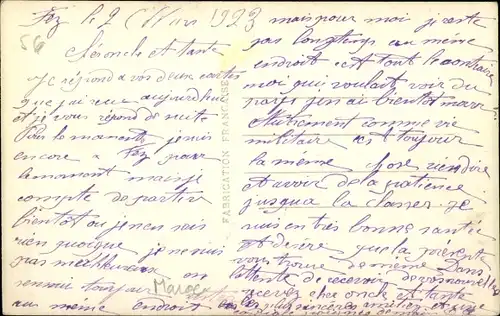 Fez, le 2 Mars 1923
56
Cher oncle et tante
Je répond a vos deux cartes
que j'ai reçu aujourdhui
et je vous répond de suite
Pour le moment je suis
encore a Fez pour
le moment mais je
compte de partir
bientôt ou je n'en sais
rien quoique je ne suis
pas malheureux on
toujour
Maroc
au même endroit
FABRICATION FRANÇAISE
mais pour moi je reste
pas longtemps au même
endroit est tout le contraire
moi qui voulait voir du
pays j'en ai bientôt marre
Autrement comme vie
militaire est toujour
la meme chose rien dire
et avoir de la patience
jusqua la classe. Je
suis en très bonne santé
et désire que la présente
vous trouve de même Dans
l'attente de recevoir de vos nouvelles
recevez cher oncle et tante